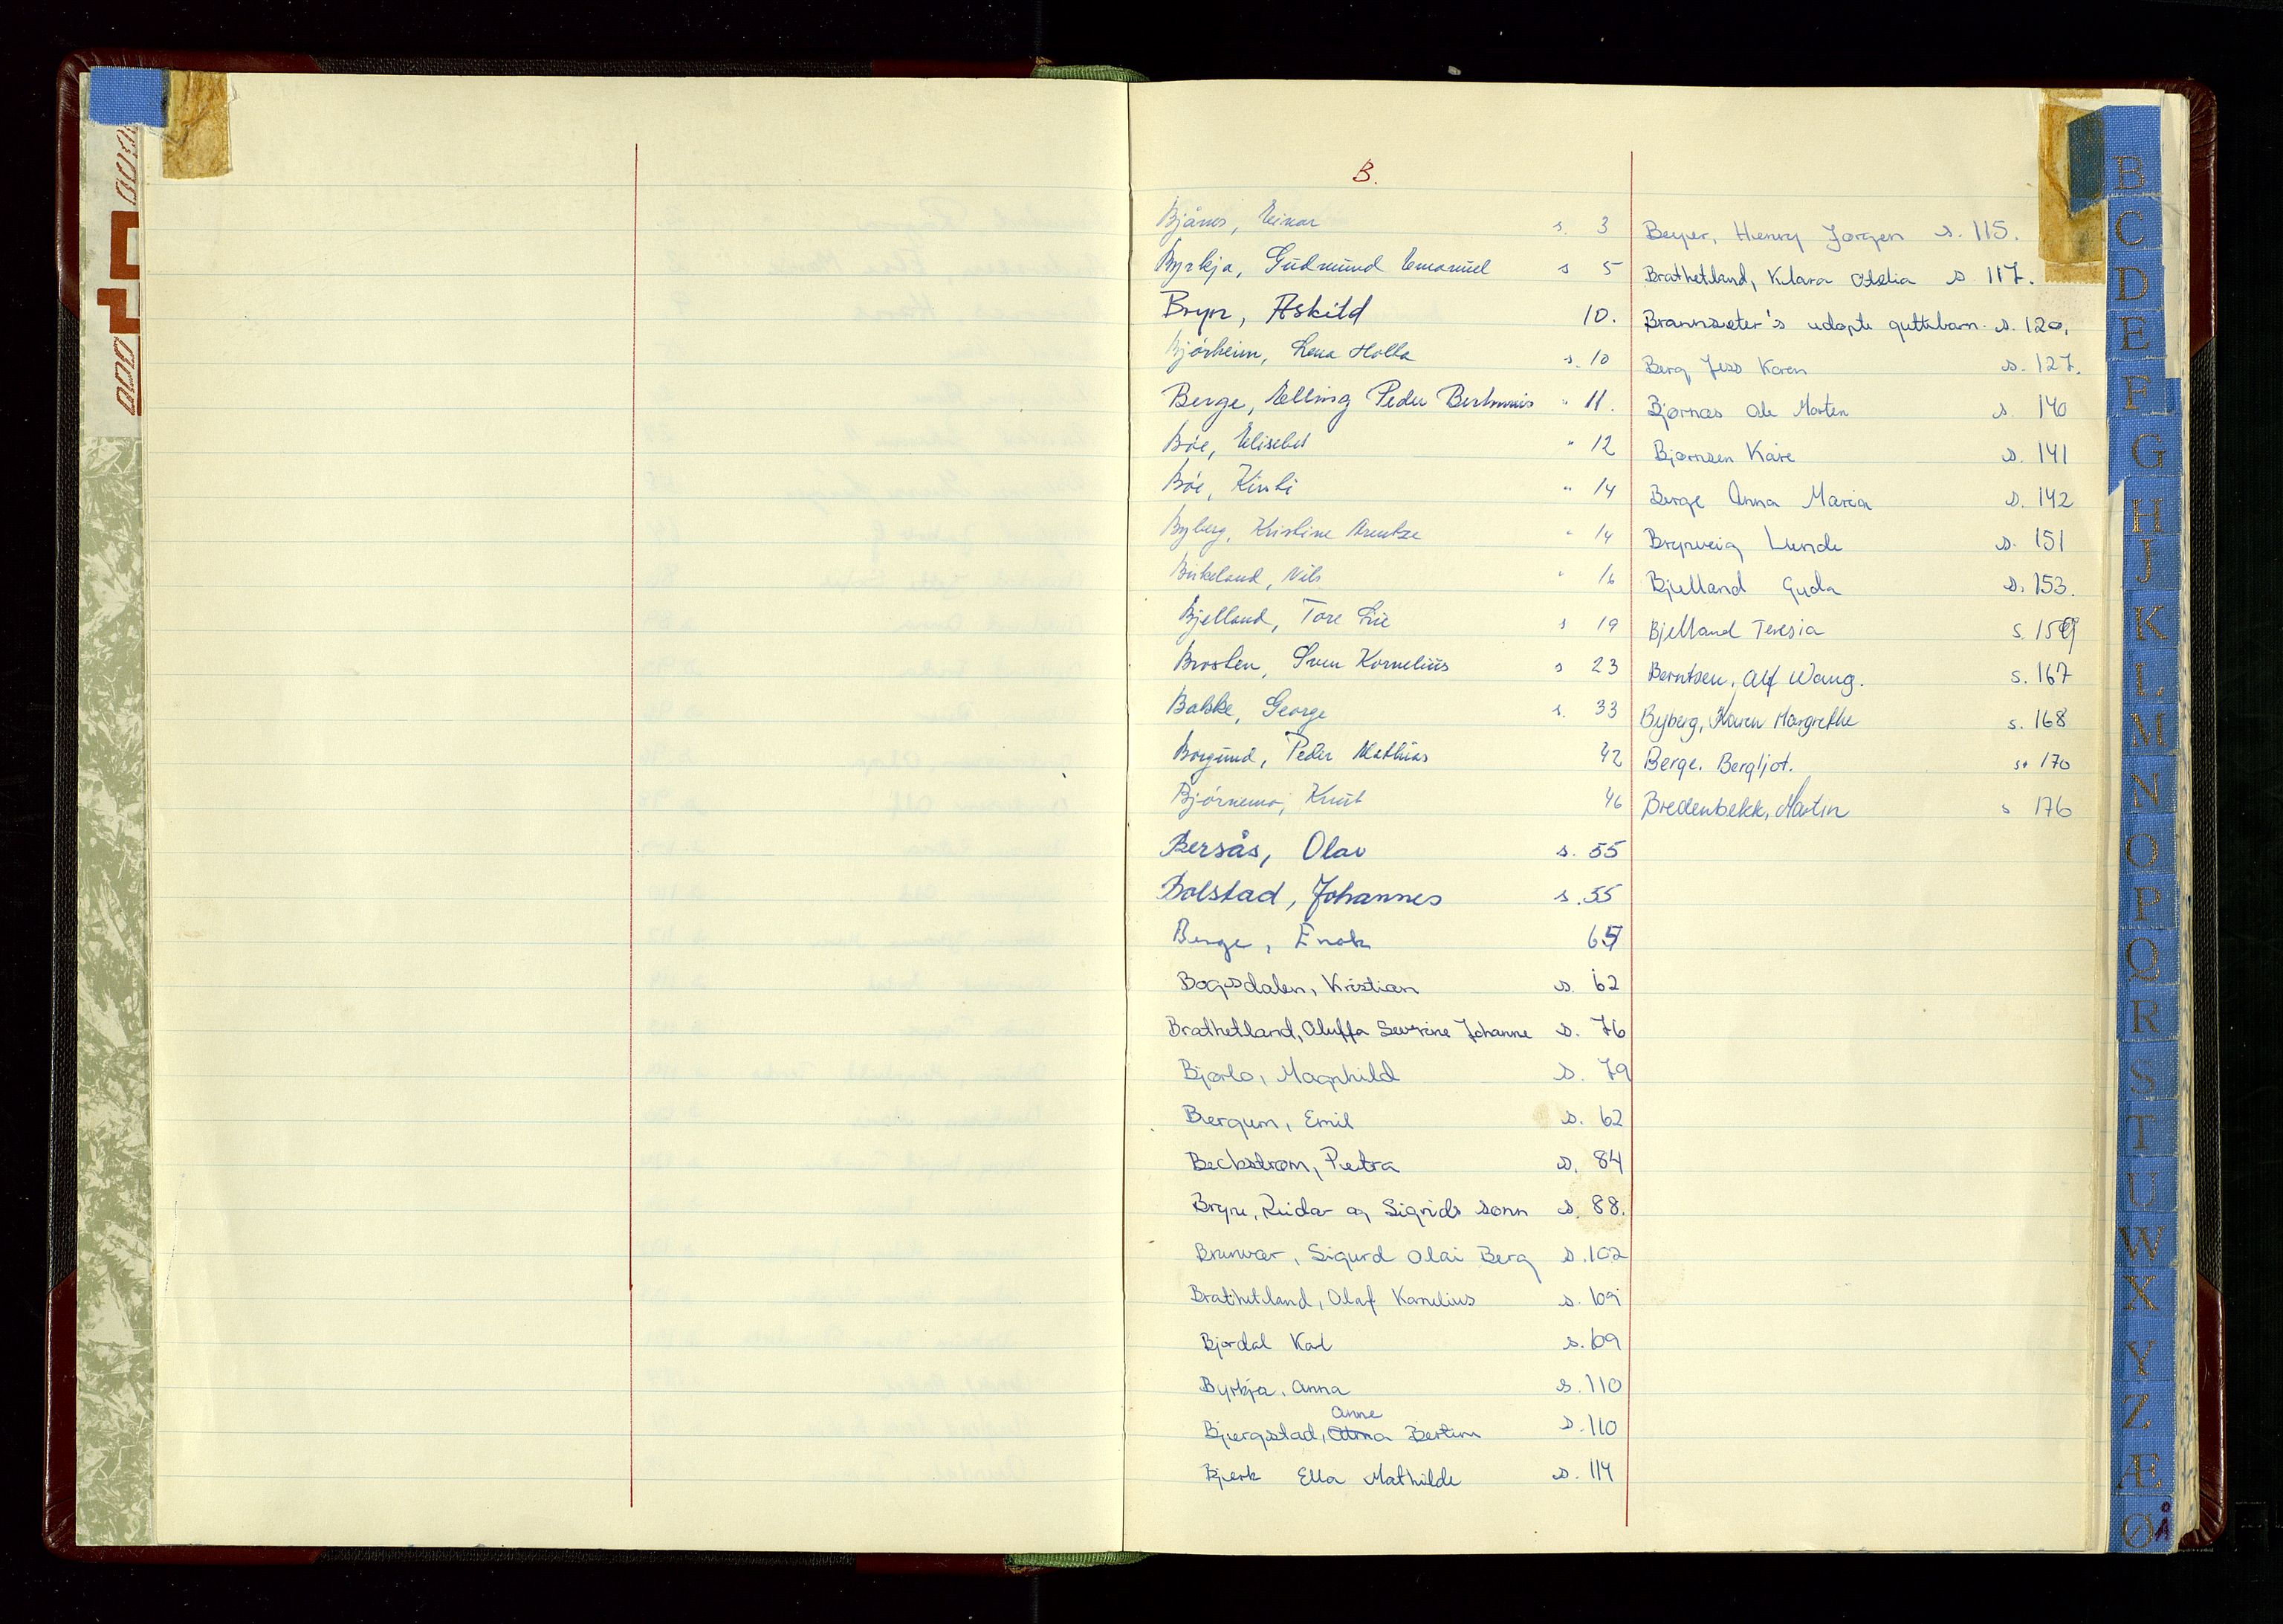 B.
Bjånes, Einar s. 3
Byrkja, Gudmund Emanuel s 5
Bryn, Askild 10.
Bjórheim, Lena Holta s. 10
Berge, Elling Peder Bertinius " 11.
Bóe, Elisebet " 12
Bóe, Kirsti " 14
Byberg, Kristine Arentze " 14
Birkeland, Nils " 16
Bjelland, Tore Lie s 19
Brosten, Sven Kornelius s 23
Balske, George s. 33
Borgund, Peder Mathias 42
Bjórnemo, Knut 46
Bersås, Olav s. 55
Bolstad, Johannes s. 55
Berge, Enok 65
Bogsdalen, Kristian s. 62
Brathetland, Oluffa Severine Johanne s. 76
Bjørlo, Magnhild s. 79
Bergum, Emil s. 62
Beckstrøm, Petra s. 84
Bryne, Reidar og Sigrids sønn s. 88.
Brunvær, Sigurd Olai Berg s. 102
Brathetland, Olaf Kornelius s. 109
Bjordal Karl s. 109
Byrkja, Anna s. 110
Anne
Bjergstad, Anna Bertine s. 110
Bjerk Ella Mathilde s. 114
Beyer, Henry Jørgen s. 115.
Brathetland, Klara Otelia s. 117.
Brannsæter's udøpte guttebarn s. 120.
Berg Jess Karen s. 127.
Bjørnas Ole Morten s. 140
Bjørnsen Kåre s. 141
Berge Anna Maria s. 142
Brynveig Lunde s. 151
Bjelland Guda s. 153.
Bjelland Teresia s. 159
Berntsen, Alf Wang. s. 167
Byberg, Karen Margrethe s. 168
Berge. Bergljot. s. 170
Bredenbekk, Martin s 176
B
C
D
E
F
G
H
J
K
L
M
N
O
P
Q
R
S
T
U
W
X
Y
Z
Æ
Ø Å